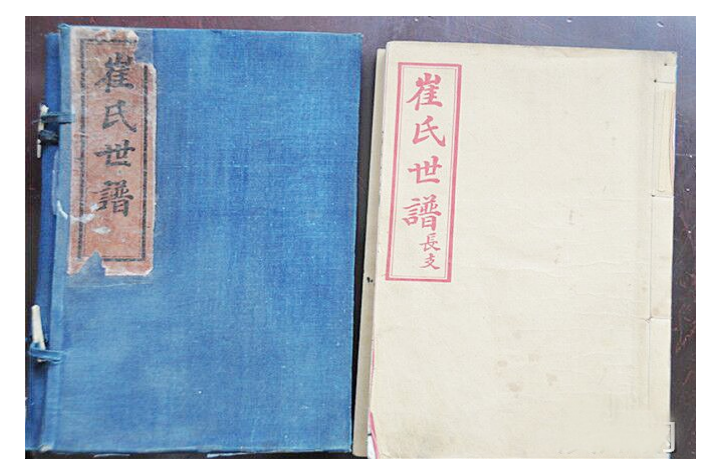 崔氏世譜
崔氏世譜
長支